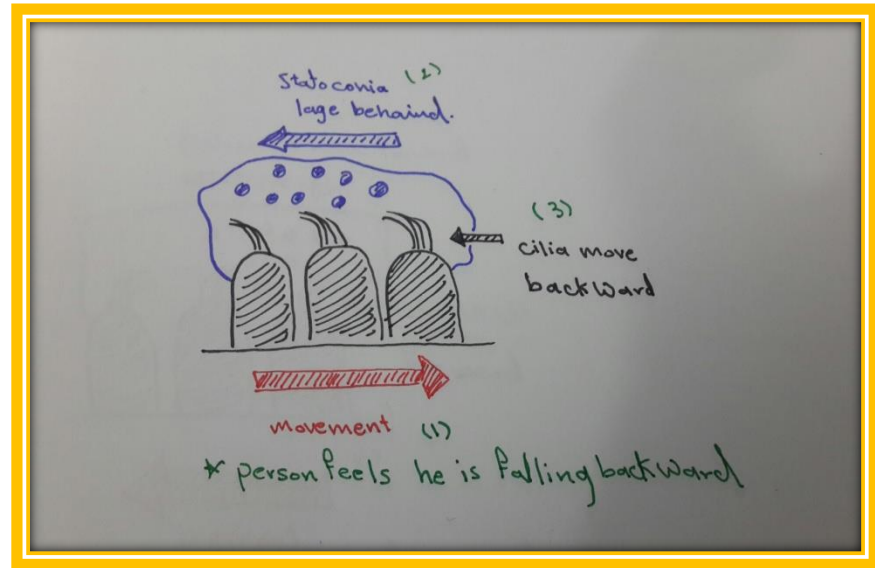 Statoconia (2)
lage behaind.
(3)
cilia move
backward
movement (1)
* person feels he is falling backward